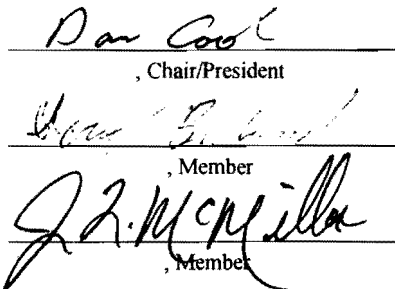 Dan Cook
, Chair/President
, Member
J. L. McMillan
, Member